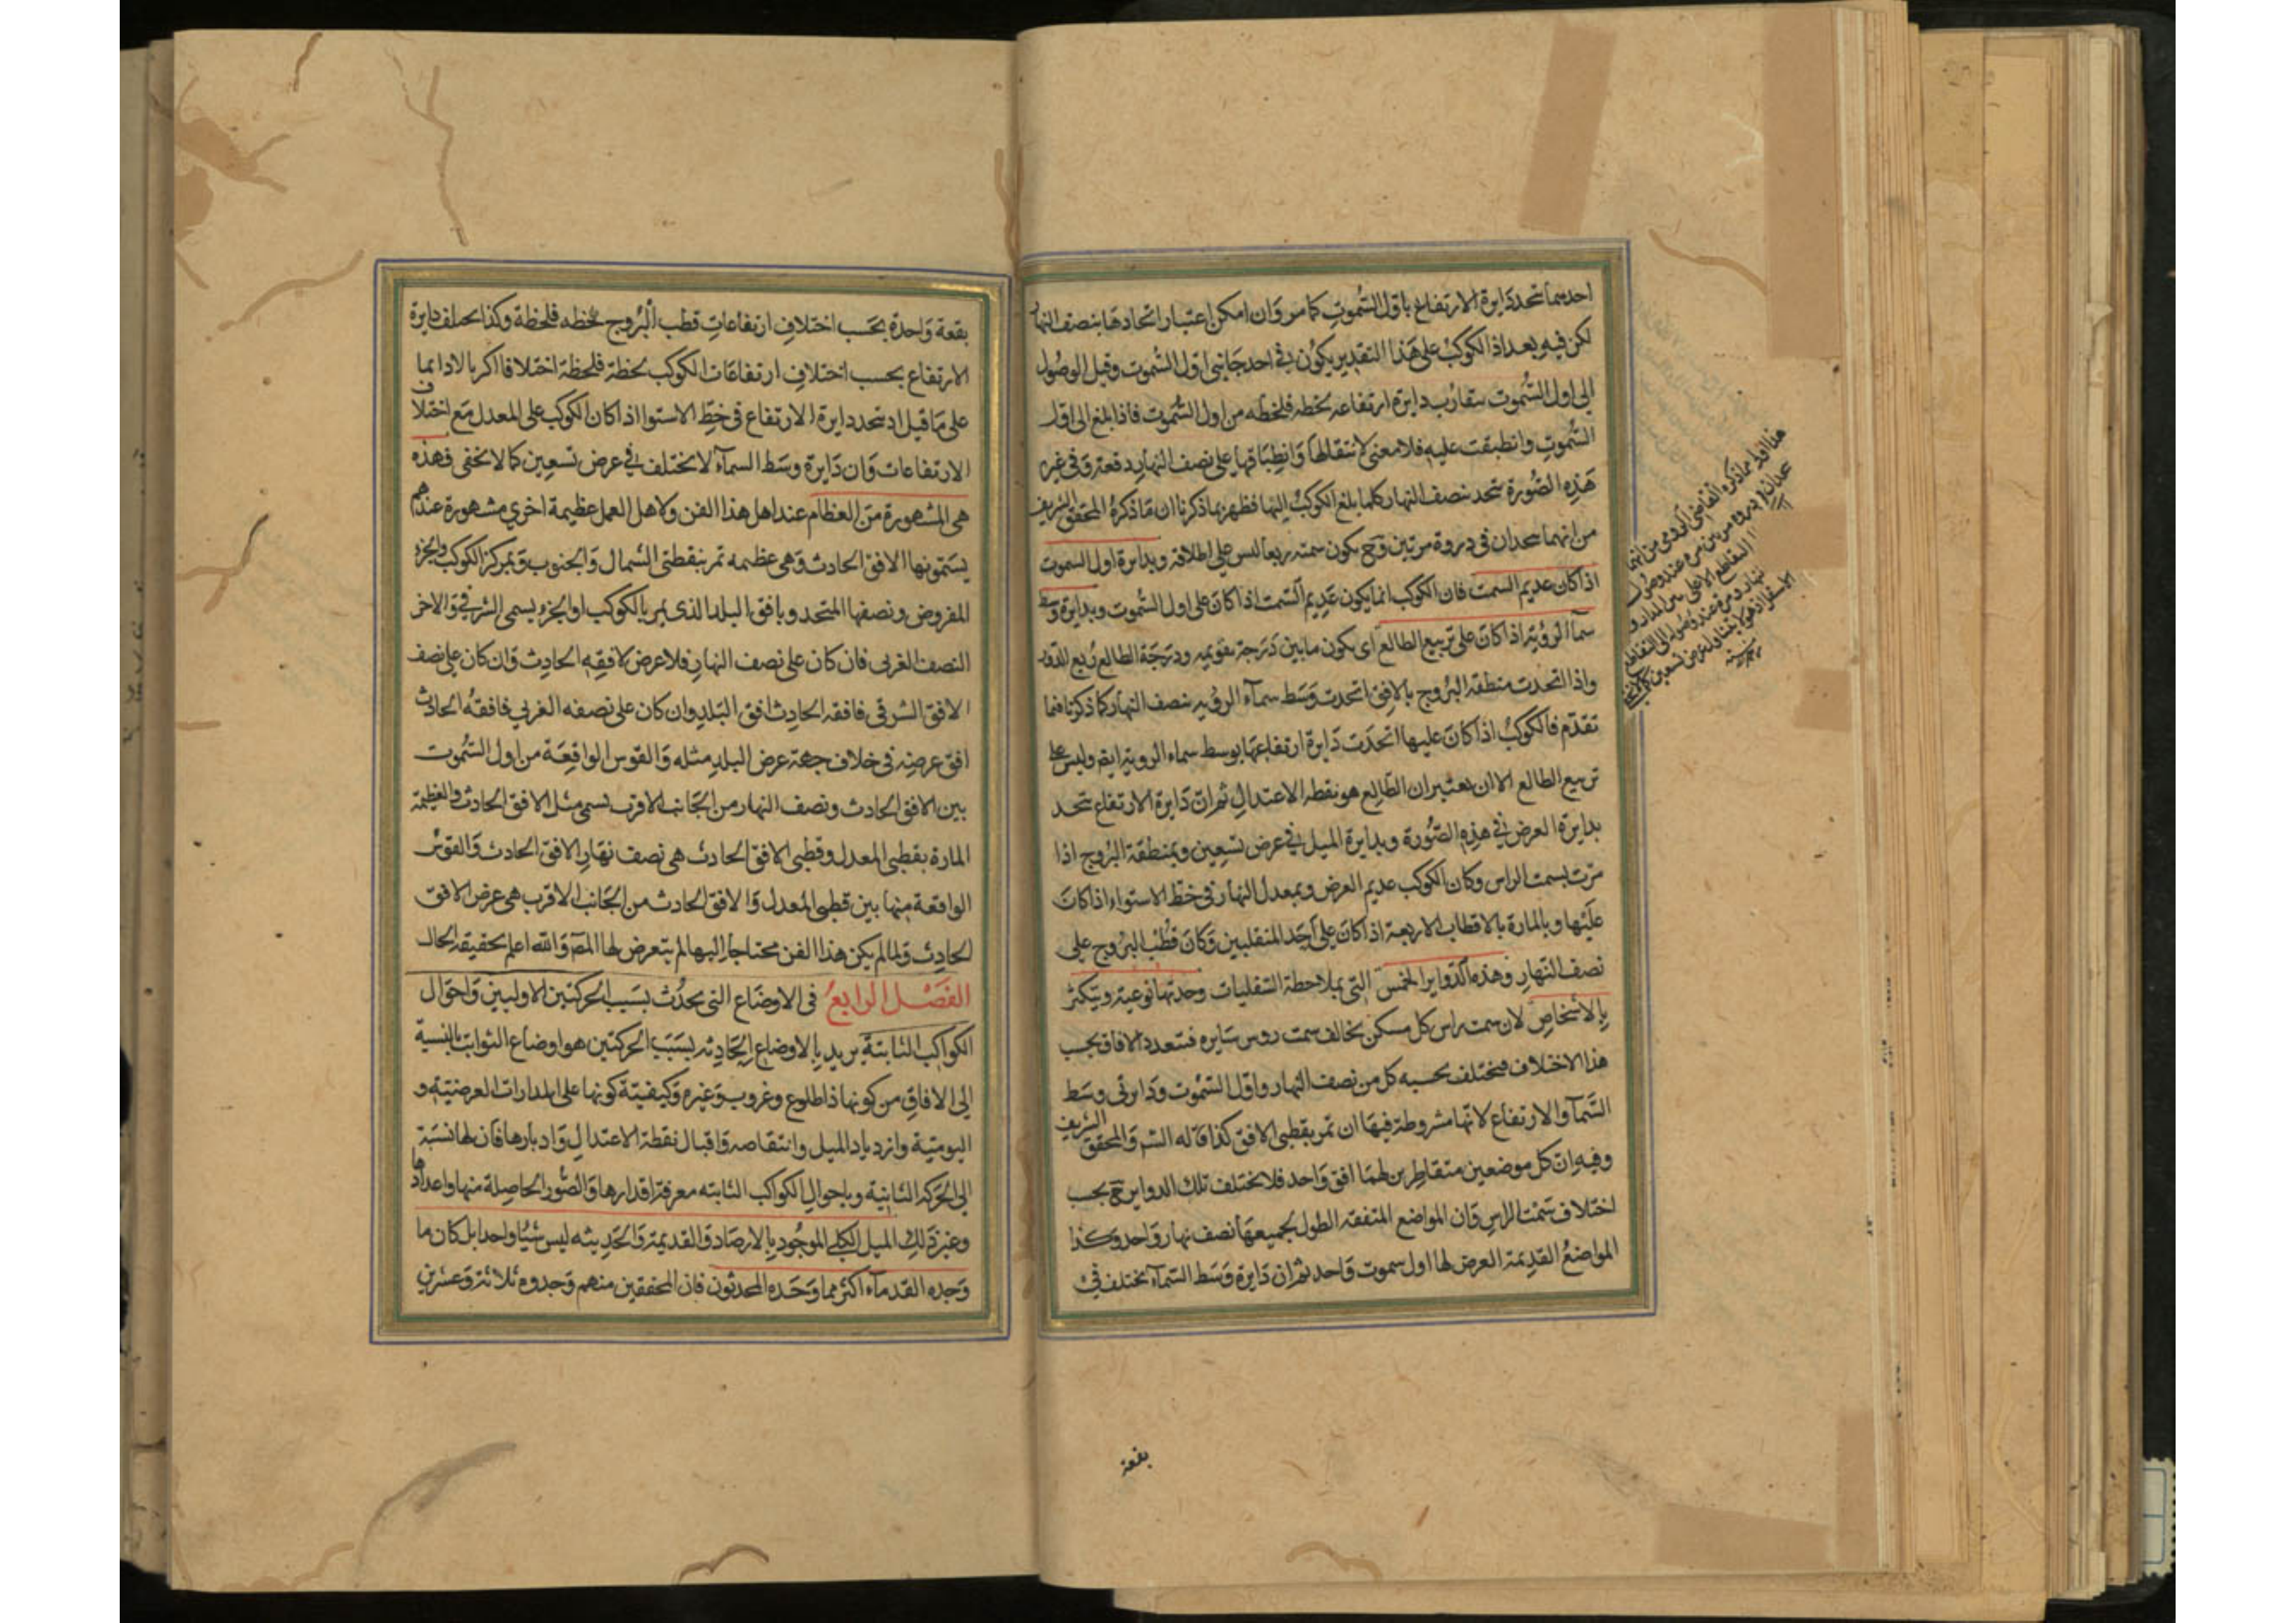 احدهما تتحد دايرة الارتفاع باول السموت كما مر وان امكن اعتبار اتحادها بنصف النهار
لكن فيه بعد اذ الكوكب على هذا التقدير يكون في احد جانبي اول السموت وقبل الوصول
الى اول السموت يتقارب دايرة ارتفاعه لحظة فلحظه من اول السموت فاذا بلغ الى اول
السموت وانطبقت عليه فلا معنى لانتقالها وانطباقها على نصف النهار دفعة وفي غير
هذه الصورة تتحد بنصف النهار كلما بلغ الكوكب اليها فظهر بما ذكرنا ان ما ذكره المحقق الشريف
من انهما تتحدان في دورة مرتين وح يكون سمته ربعا ليس على اطلاقه وبدايرة اول السموت
اذا كان عديم السمت فان الكوكب انما يكون عديم السمت اذا كان على اول السموت وبدايرة وسط
سماء الروية اذا كان على تربيع الطالع اى يكون ما بين درجة تقويمه ودرجة الطالع ربع الدور
واذا اتحدت منطقة البروج بالافق اتحدت وسط سماء الروية بنصف النهار كما ذكرنا فيما
تقدم فالكوكب اذا كان عليها اتحدت دايرة ارتفاعها بوسط سماء الروية ايضا وليس على
تربيع الطالع الا ان يعتبر ان الطالع هو نقطة الاعتدال ثم ان دايرة الارتفاع تتحد
بدايرة العرض في هذه الصورة وبدايرة الميل في عرض تسعين وبمنطقة البروج اذا
مرت بسمت الراس وكان الكوكب عديم العرض وبمعدل النهار في خط الاستواء اذا كان
عليها وبالمارة بالاقطاب الاربعة اذا كان على احد المنقلبين وكان قطب البروج على
نصف النهار وهذه الدواير الخمس التي بملاحظة السفليات وحدتها نوعية ويتكثر
بالاشخاص لان سمت راس كل مسكن يخالف سمت روس سايره فتتعدد الافاق بحسب
هذا الاختلاف فيختلف بحسبه كل من نصف النهار واول السموت ودايرتى وسط
السماء والارتفاع لانها مشروطة فيها ان تمر بقطبي الافق كذا قاله الشم والمحقق الشريف
وفيه ان كل موضعين متقاطرين لهما افق واحد فلا يختلف تلك الدواير ح بحسب
اختلاف سمت الراس وان المواضع المتفقة الطول لجميعها نصف نهار واحد وكذا
المواضع القديمة العرض لها اول سموت واحد ثم ان دايرة وسط السماء تختلف في
هذا اقل مما ذكره القاضي الرومي من انهما
بقعة
بقعة واحدة بحسب اختلاف ارتفاعات قطب البروج لحظه فلحظة وكذا تختلف دايرة
الارتفاع بحسب اختلاف ارتفاعات الكوكب لحظة فلحظة اختلافا اكثريا لا دايما
على ما قيل اذ تتحد دايرة الارتفاع في خط الاستوا اذا كان الكوكب على المعدل مع اختلاف
الارتفاعات وان دايرة وسط السماء لا يختلف في عرض تسعين كما لا يخفى فهذه
هي المشهورة من العظام عند اهل هذا الفن ولاهل العمل عظيمة اخري مشهورة عندهم
يسمونها الافق الحادث وهى عظيمه تمر بنقطتي الشمال والجنوب وبمركز الكوكب والجزء
المفروض ونصفها المتحد وبافق البلد الذى يمر بالكوكب او الجزء يسمى الشرقي والاخر
النصف الغربي فان كان على نصف النهار فلا عرض لافقه الحادث وان كان على نصف
الافق الشرقي فافقه الحادث افق البلد وان كان على نصفه الغربي فافقه الحادث
افق عرضه في خلاف جهة عرض البلد مثله والقوس الواقعة من اول السموت
بين الافق الحادث ونصف النهار من الجانب الاقرب تسمى ميل الافق الحادث والعظيمة
المارة بقطبي المعدل وقطبي الافق الحادث هي نصف نهار الافق الحادث والقوس
الواقعة منها بين قطبي المعدل والافق الحادث من الجانب الاقرب هي عرض الافق
الحادث ولما لم يكن هذا الفن محتاجا اليها لم يتعرض لها المصر والله اعلم بحقيقة الحال
الفصل الرابع في الاوضاع التي يحدث بسبب الحركتين الاوليين واحوال
الكواكب الثابتة يريد بالاوضاع الحادثه بسبب الحركتين هو اوضاع الثوابت بالنسبة
الى الافاق من كونها ذا طلوع وغروب وغيره وكيفية كونها على المدارات العرضية و
اليومية وازدياد الميل وانتقاصه واقبال نقطة الاعتدال وادبارها فان لها نسبة
الى الحركة الثانية وباحوال الكواكب الثابته معرفة اقدارها والصور الحاصلة منها واعدادها
وغير ذلك الميل الكلي الموجود بالارصاد القديمة والحديثه ليس شيئا واحدا بل كان ما
وجده القدماء اكثر مما وجده المحدثون فان المحققين منهم وجدوه ثلاثة وعشرين